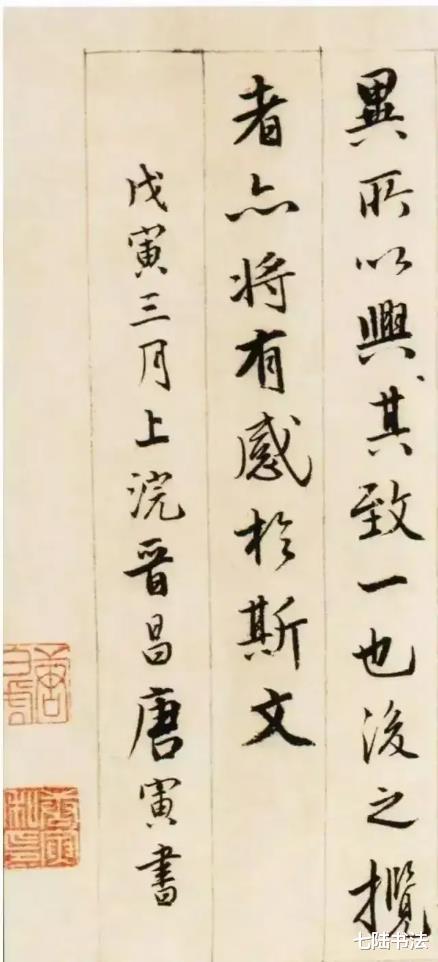 異所以興其致一也後之攬
者亦將有感於斯文
戊寅三月上浣晉昌唐寅書
七陆书法